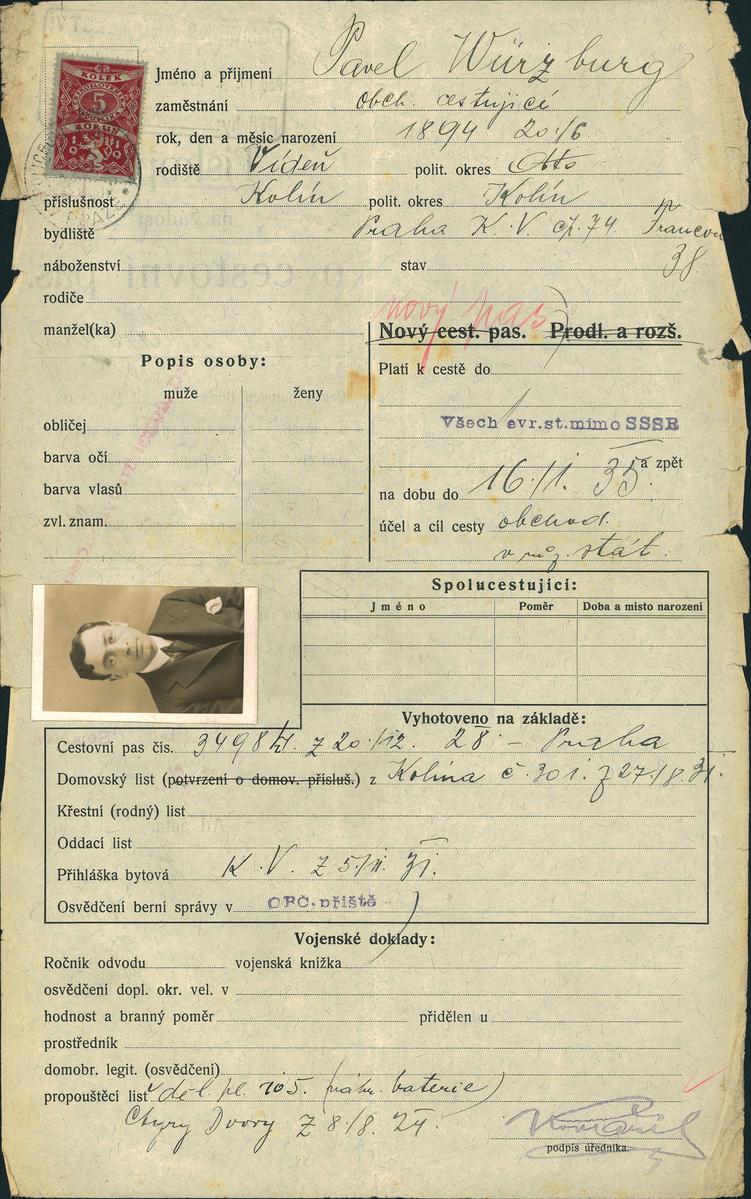 KOLEK
5
KORUN
1919
Jméno a příjmení Pavel Würzburg
zaměstnání obch. cestující
rok, den a měsíc narození 1894 20./6
rodiště Vídeň polit. okres
příslušnost Kolín polit. okres Kolín
bydliště Praha K. V. čp. 74
38.
náboženství stav
rodiče
nový pas
manžel(ka)
Nový cest. pas. Prodl. a rozš.
Popis osoby:
muže ženy
obličej
barva očí
barva vlasů
zvl. znam.
Platí k cestě do
Všech evr.st.mimo SSSR
a zpět
na dobu do 16./I. 35
účel a cíl cesty obchod.
v růz. stát.
Spolucestující:
Jméno Poměr Doba a místo narození
Vyhotoveno na základě:
Cestovní pas čis. 3498 z 20./12. 28 – Praha
Domovský list (potvrzení o domov. přísluš.) z Kolína č. 301. z 27./8. 31.
Křestní (rodný) list
Oddací list
Přihláška bytová K. V. z 5./II. 31.
Osvědčení berní správy v OPČ. příště
Vojenské doklady:
Ročník odvodu vojenská knížka
osvědčení dopl. okr. vel. v
hodnost a branný poměr přidělen u
prostředník
domobr. legit. (osvědčení)
propouštěcí list děl. pl. 105. (náhr. baterie)
Čtyry Dvory z 8./8. 21.
podpis úředníka.